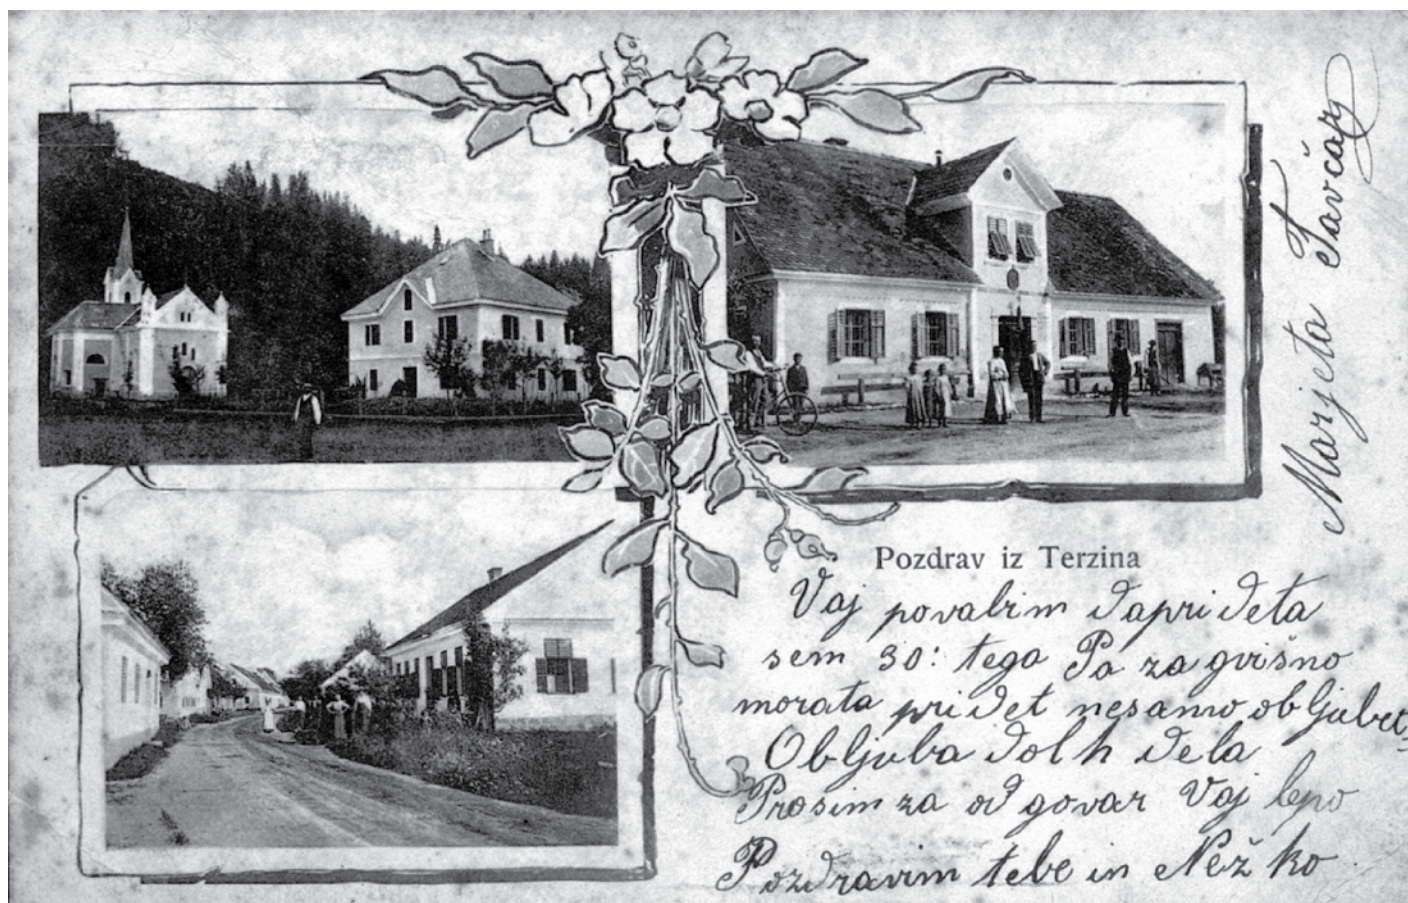 Pozdrav iz Terzina
Vaj povabim dapri deta
sem 30: tega Pa za gvišno
morata pri det nesamo obljubet,
Obljuba dolh dela
Prosim za od govar Vaj lepo
Pozdravim tebe in Nežko
Marjeta Tavčar